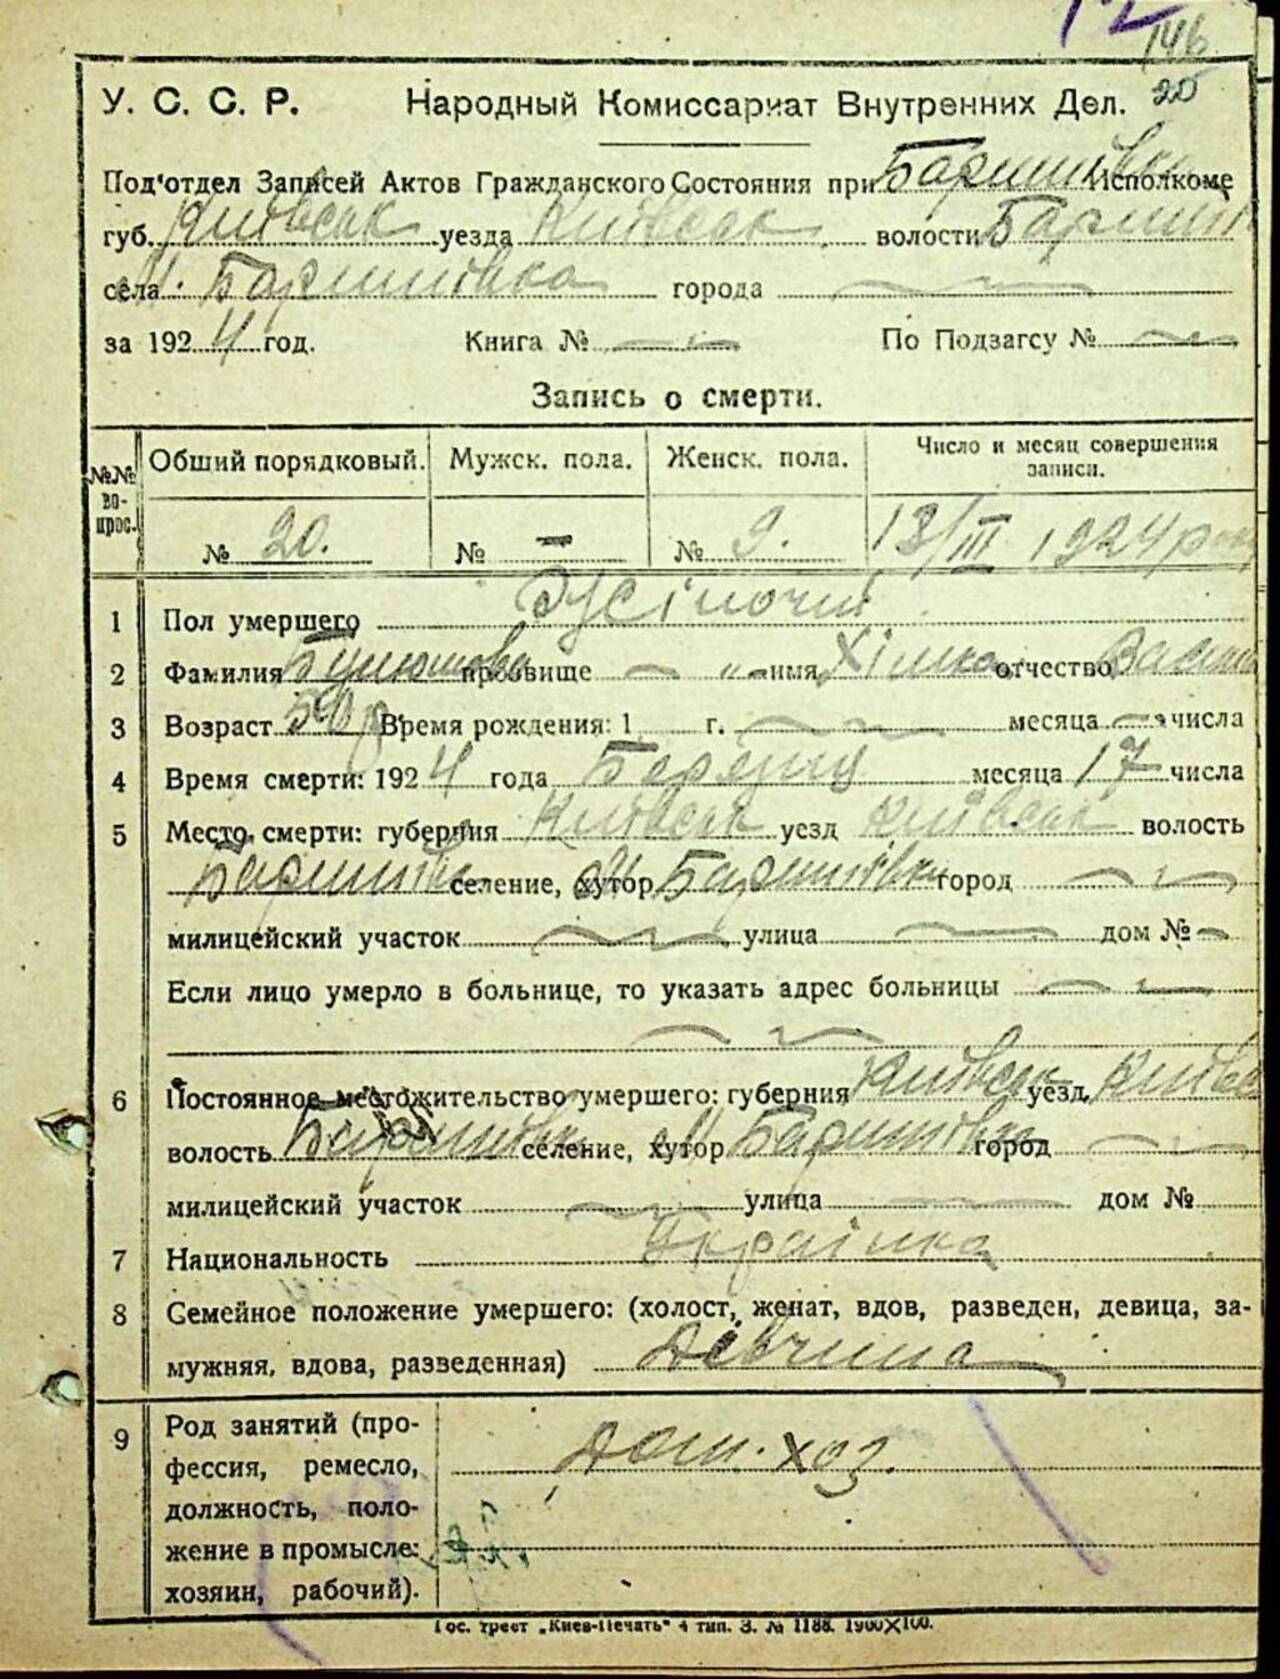 146
У. С. С. Р. Народный Комиссариат Внутренних Дел. 20
Под'отдел Записей Актов Гражданского Состояния при Баришівск Исполкоме
губ. Київськ уезда Київськ волости Бариш
села м. Баришівка города
за 1924 год. Книга № По Подзагсу №
Запись о смерти.
№№ во-прос. Обший порядковый. Мужск. пола. Женск. пола. Число и месяц совершения записи.
№ 20. № — № 9. 13/III 1924 р
1 Пол умершего Жіночий
2 Фамилия прозвище " имя отчество Васил
3 Возраст 50 р Время рождения: 1 г. месяца числа
4 Время смерти: 1924 года Березня месяца 17 числа
5 Место смерти: губерния Київськ уезд Київськ волость
Баришівк селение, хутор м. Баришівка город
милицейский участок улица дом №
Если лицо умерло в больнице, то указать адрес больницы
6 Постоянное местожительство умершего: губерния Київськ уезд Київс
волость Баришівк селение, хутор м. Баришівка город
милицейский участок улица дом №
7 Национальность Українка
8 Семейное положение умершего: (холост, женат, вдов, разведен, девица, за-
мужняя, вдова, разведенная) Дівчина
9 Род занятий (про-
фессия, ремесло, Дом. хоз.
должность, поло-
жение в промысле:
хозяин, рабочий).
Гос. трест „Киев-Печать" 4 тип. З. № 1188. 1900×100.